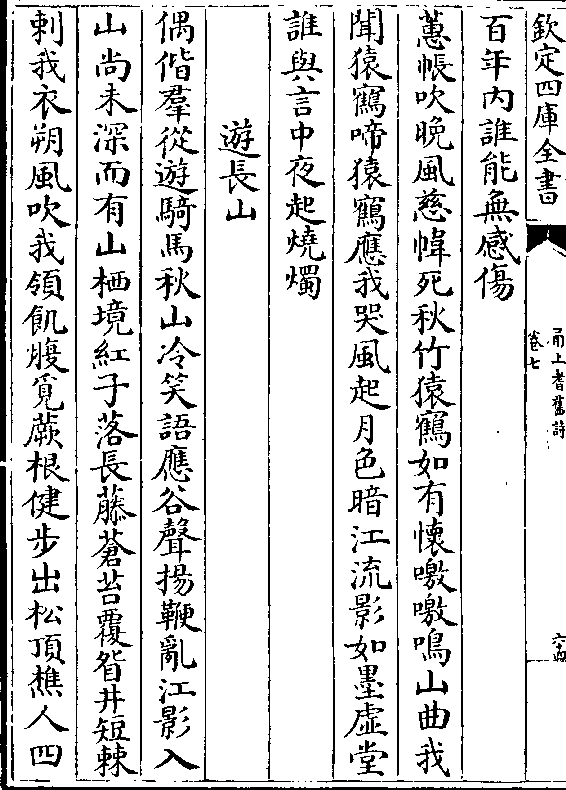 欽定四庫全書
甬上耆舊詩
卷七
六十四
百年內誰能無感傷
蕙帳吹晚風慈幃死秋竹猿鶴如有懷噭噭鳴山曲我
聞猿鶴啼猿鶴應我哭風起月色暗江流影如墨虛堂
誰與言中夜起燒燭
遊長山
偶偕羣從遊騎馬秋山冷笑語應谷聲揚鞭亂江影入
山尚未深而有山栖境紅子落長藤蒼苔覆眢井短棘
刺我衣朔風吹我領飢腹覓蕨根健步出松頂樵人四